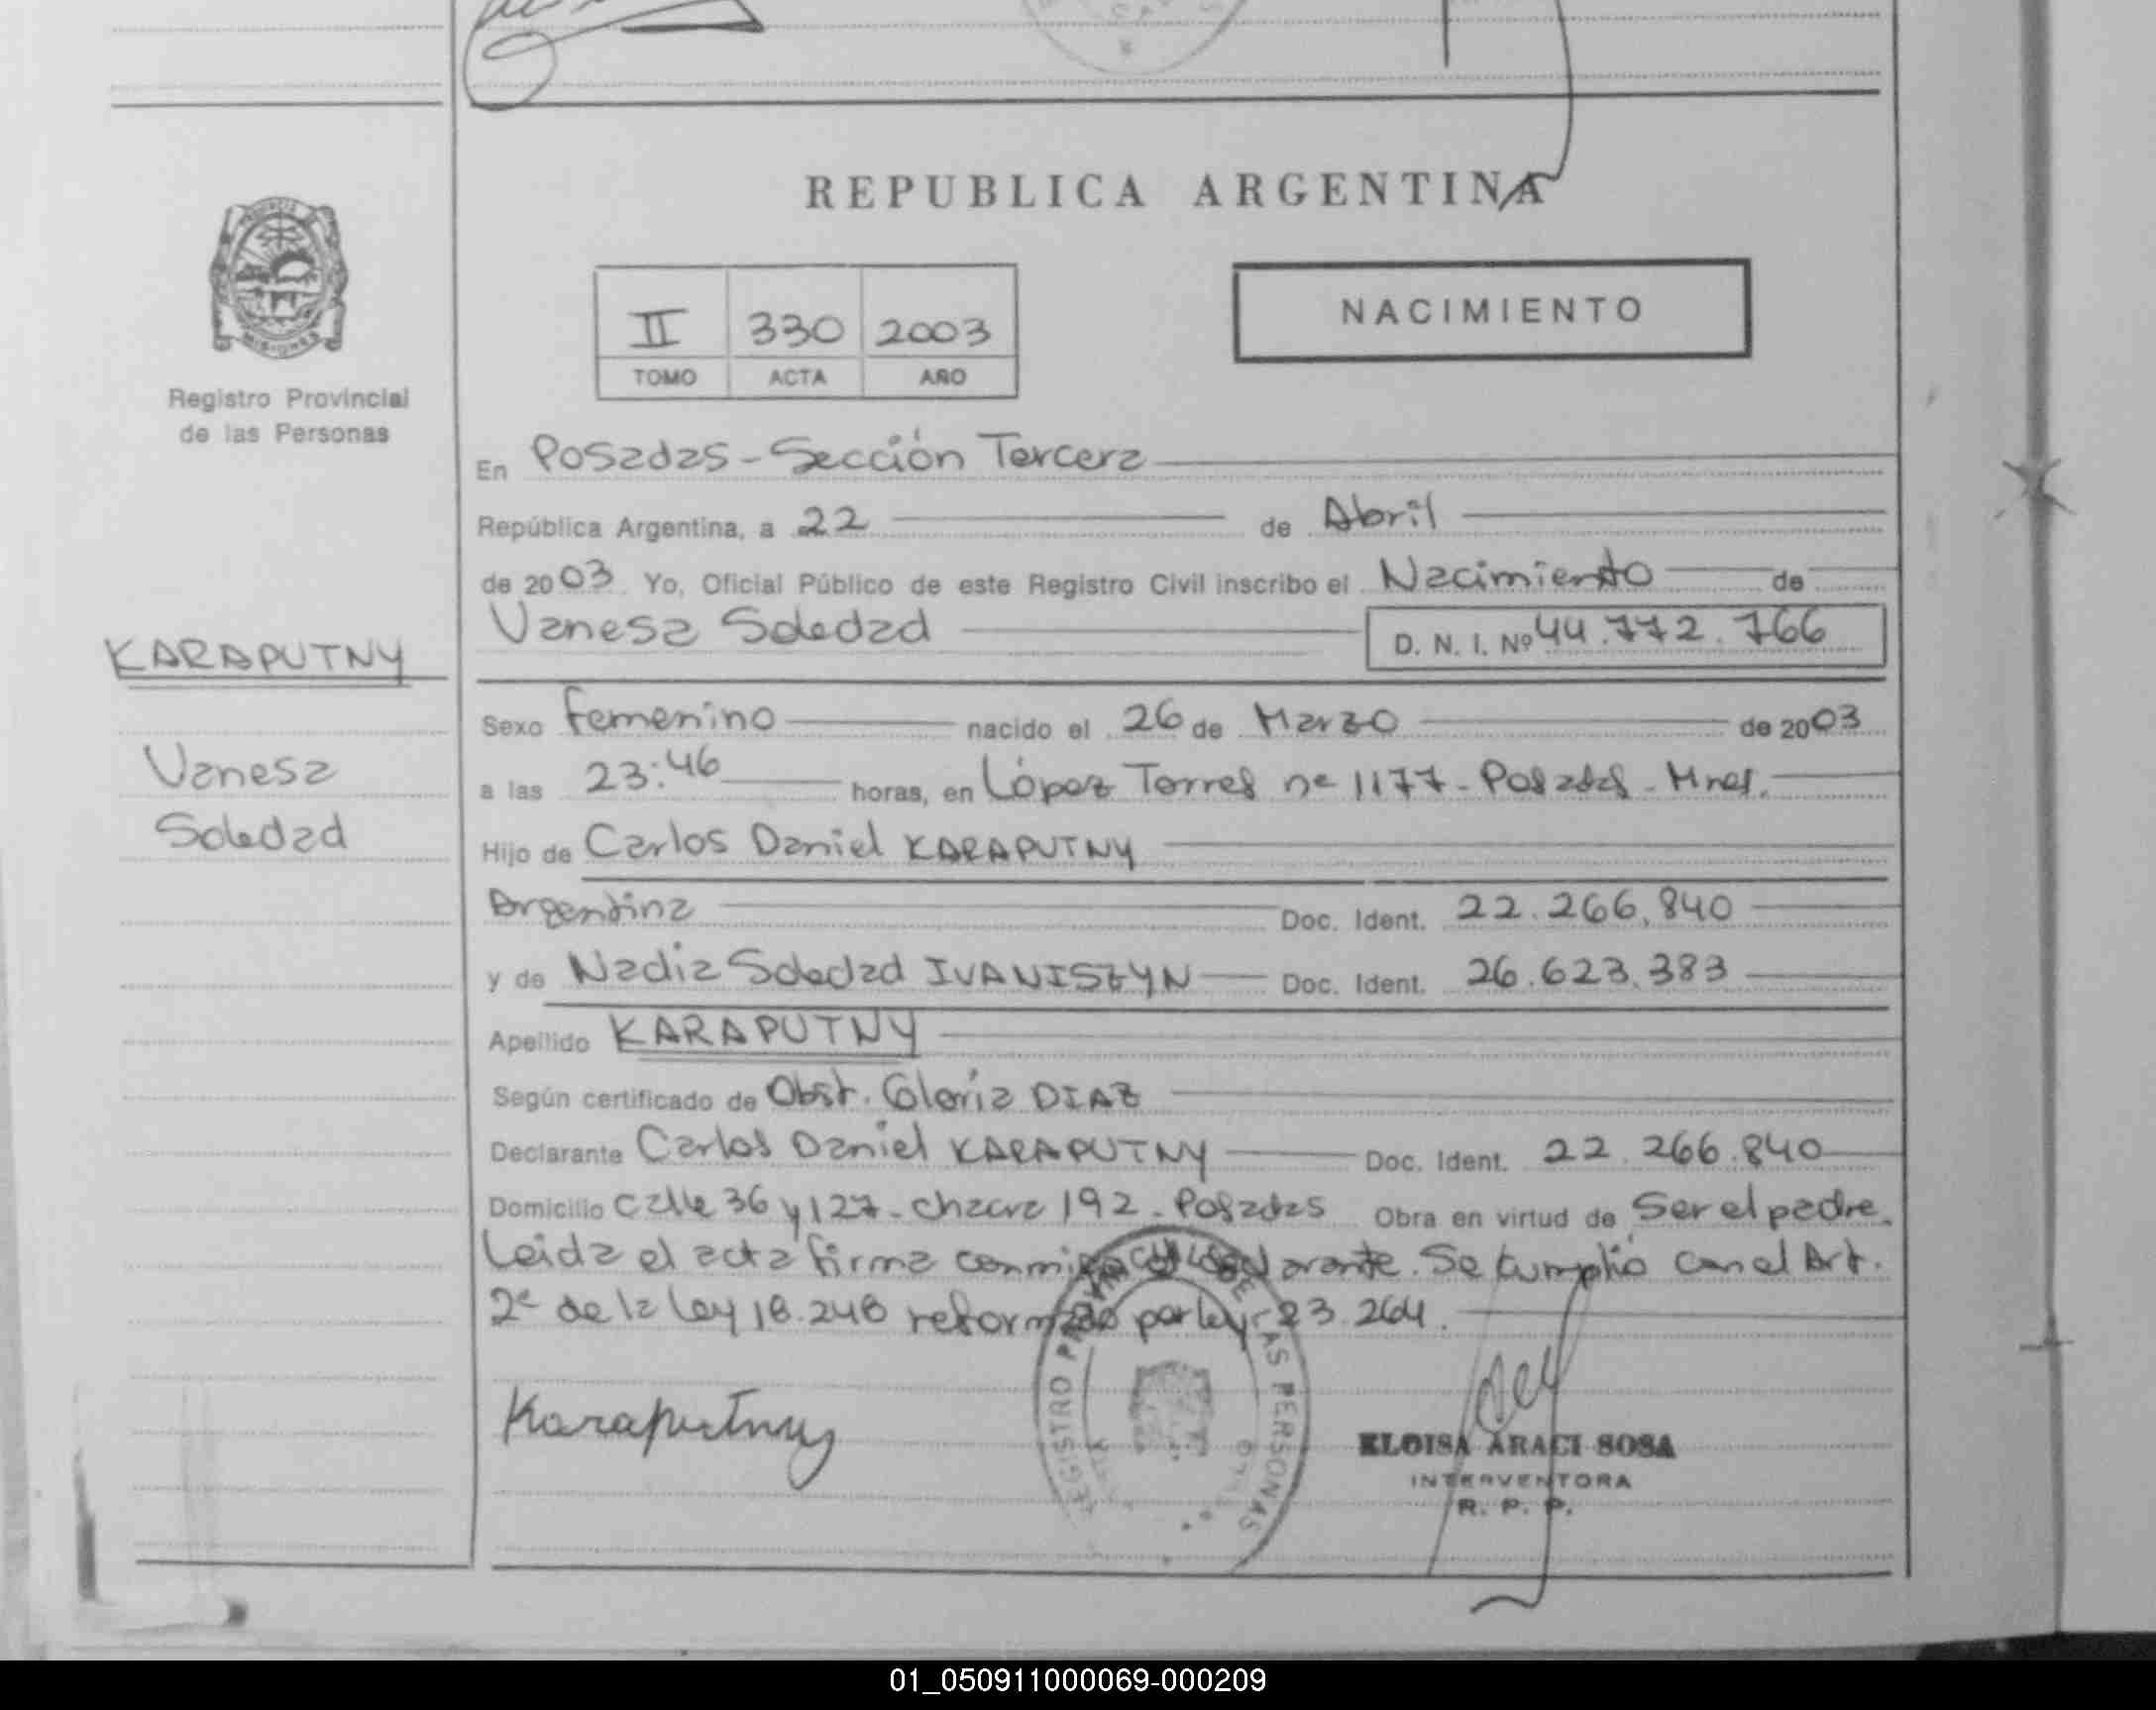 REPUBLICA ARGENTINA
II 330 2003
TOMO ACTA AÑO
NACIMIENTO
MISIONES
Registro Provincial
de las Personas
KARAPUTNY
Vanesa
Soledad
En Posadas - Sección Tercera
República Argentina, a 22 de Abril
de 2003 Yo, Oficial Público de este Registro Civil inscribo el Nacimiento de
Vanesa Soledad D. N. I. Nº 44.772.766
Sexo Femenino nacido el 26 de Marzo de 2003
a las 23:46 horas, en López Torres nº 1177 - Posadas - Mnes.
Hijo de Carlos Daniel KARAPUTNY
Argentina Doc. Ident. 22.266.840
y de Nadia Soledad IVANISZYN Doc. Ident. 26.623.383
Apellido KARAPUTNY
Según certificado de Obst. Gloria DIAZ
Declarante Carlos Daniel KARAPUTNY Doc. Ident. 22.266.840
Domicilio Calle 36 y 127 - chacra 192 - Posadas Obra en virtud de Ser el padre.
Leida el acta firma conmigo el declarante. Se cumplió con el Art.
2º de la Ley 18.248 reformado por ley 23.264.
Karaputny
REGISTRO PROVINCIAL DE LAS PERSONAS
ELOISA ARACI SOSA
INTERVENTORA
R. P. P.
01_050911000069-000209